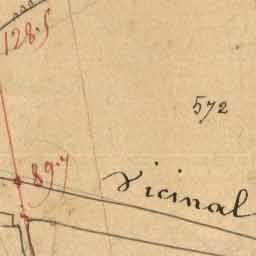 128.5
572
89.7
Vicinal